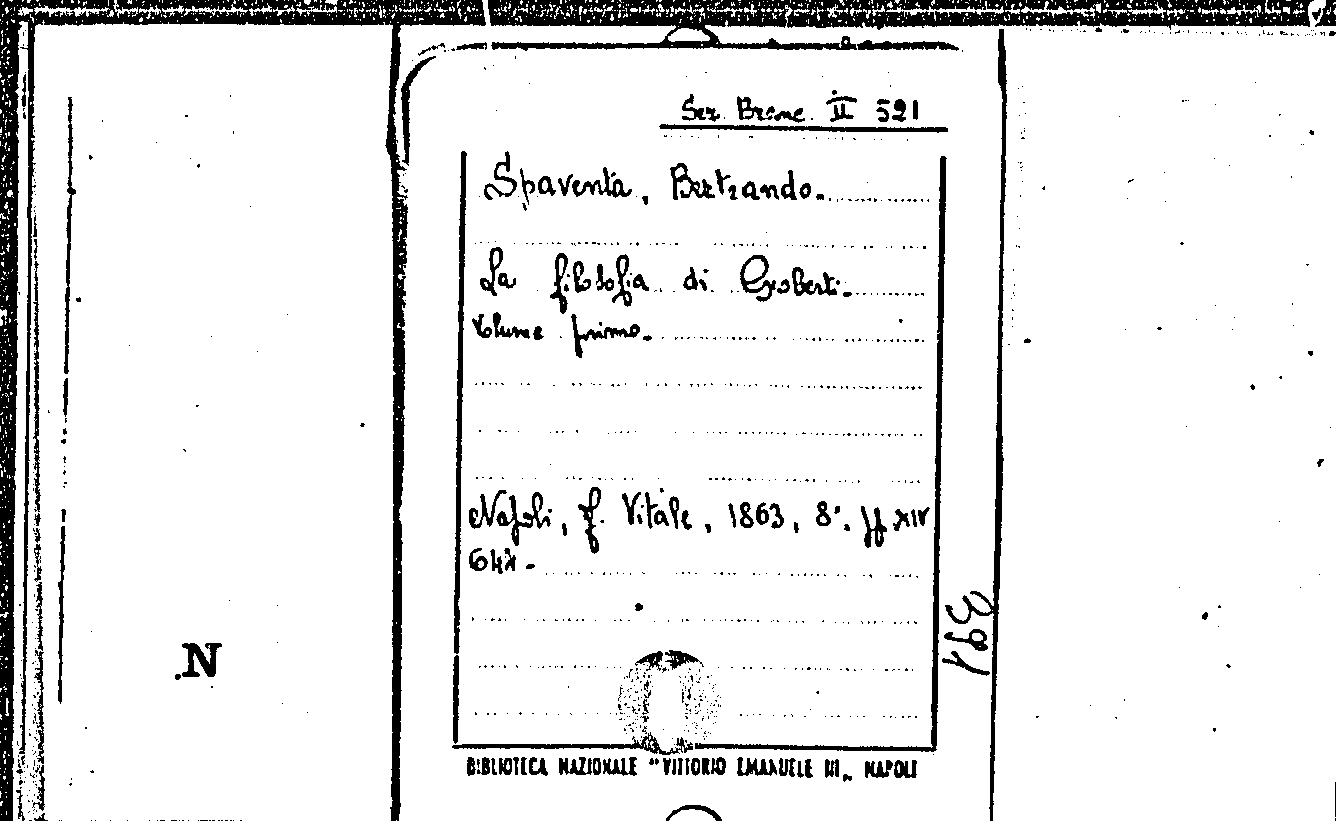 Sez. Branc. II 521
Spaventa, Bertrando.
La filosofia di Gioberti.
Volume primo.
Napoli, f. Vitale, 1863, 8°. pp XIV
N
BIBLIOTECA NAZIONALE "VITTORIO EMANUELE III„ NAPOLI